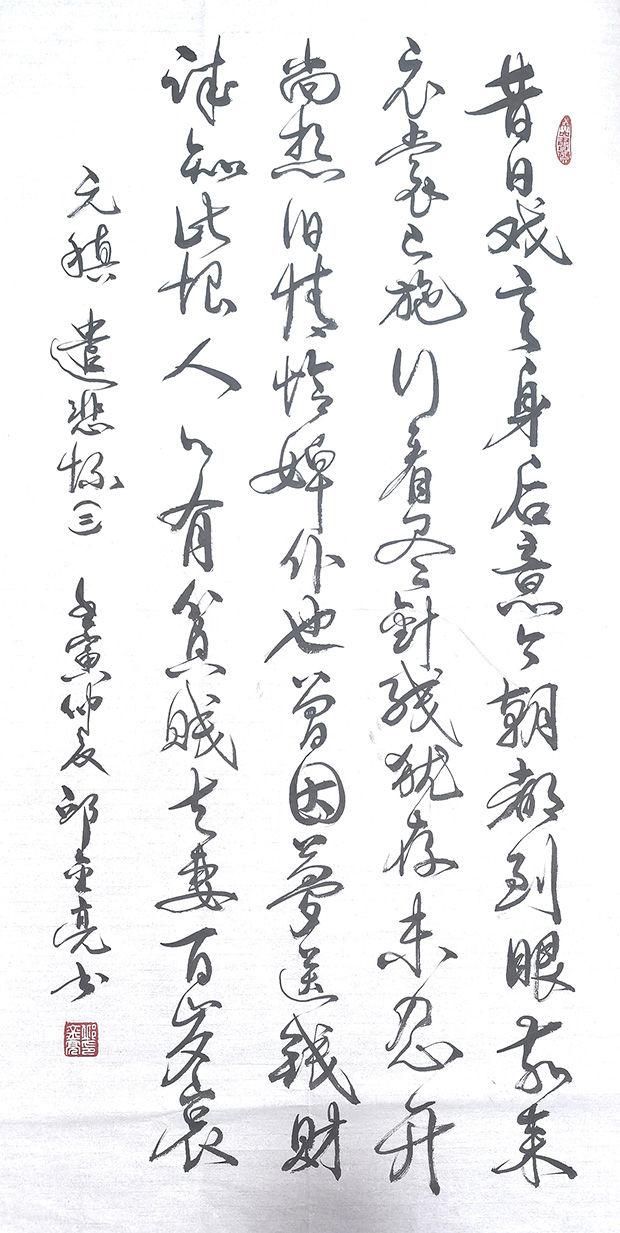 昔日戏言身后意今朝都到眼前来
衣裳已施行看尽針线犹存未忍开
尚想旧情怜婢仆也曾因夢送钱財
诚知此恨人々有貧賤夫妻百岁哀
元稹 遣悲怀(三) 壬寅仲夏 邱金亮书